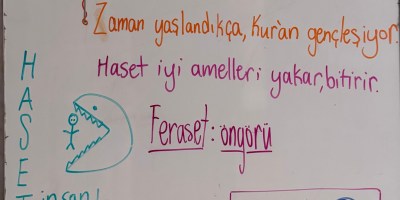 ! Zaman yaşlandıkça, Kur'an gençleşiyor.
Haset iyi amelleri yakar, bitirir.
HASET
Feraset: öngörü
insan!